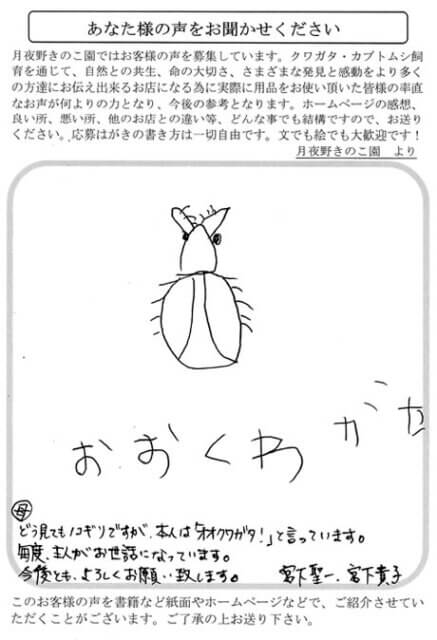 あなた様の声をお聞かせください
月夜野きのこ園ではお客様の声を募集しています。クワガタ・カブトムシ飼
育を通じて、自然との共生、命の大切さ、さまざまな発見と感動をより多く
の方達にお伝え出来るお店になる為に実際に用品をお使い頂いた皆様の率直
なお声が何よりの力となり、今後の参考となります。ホームページの感想、
良い所、悪い所、他のお店との違い等、どんな事でも結構ですので、お送り
ください。応募はがきの書き方は一切自由です。文でも絵でも大歓迎です！
月夜野きのこ園　より
おおくわがた
母
どう見てもノコギリですが、本人は「オオクワガタ！」と言っています。
毎度、主人がお世話になっています。
今後とも、よろしくお願い致します。　宮下聖一、宮下貴子
このお客様の声を書籍など紙面やホームページなどで、ご紹介させてい
ただくことがございます。ご了承の上お送り下さい。